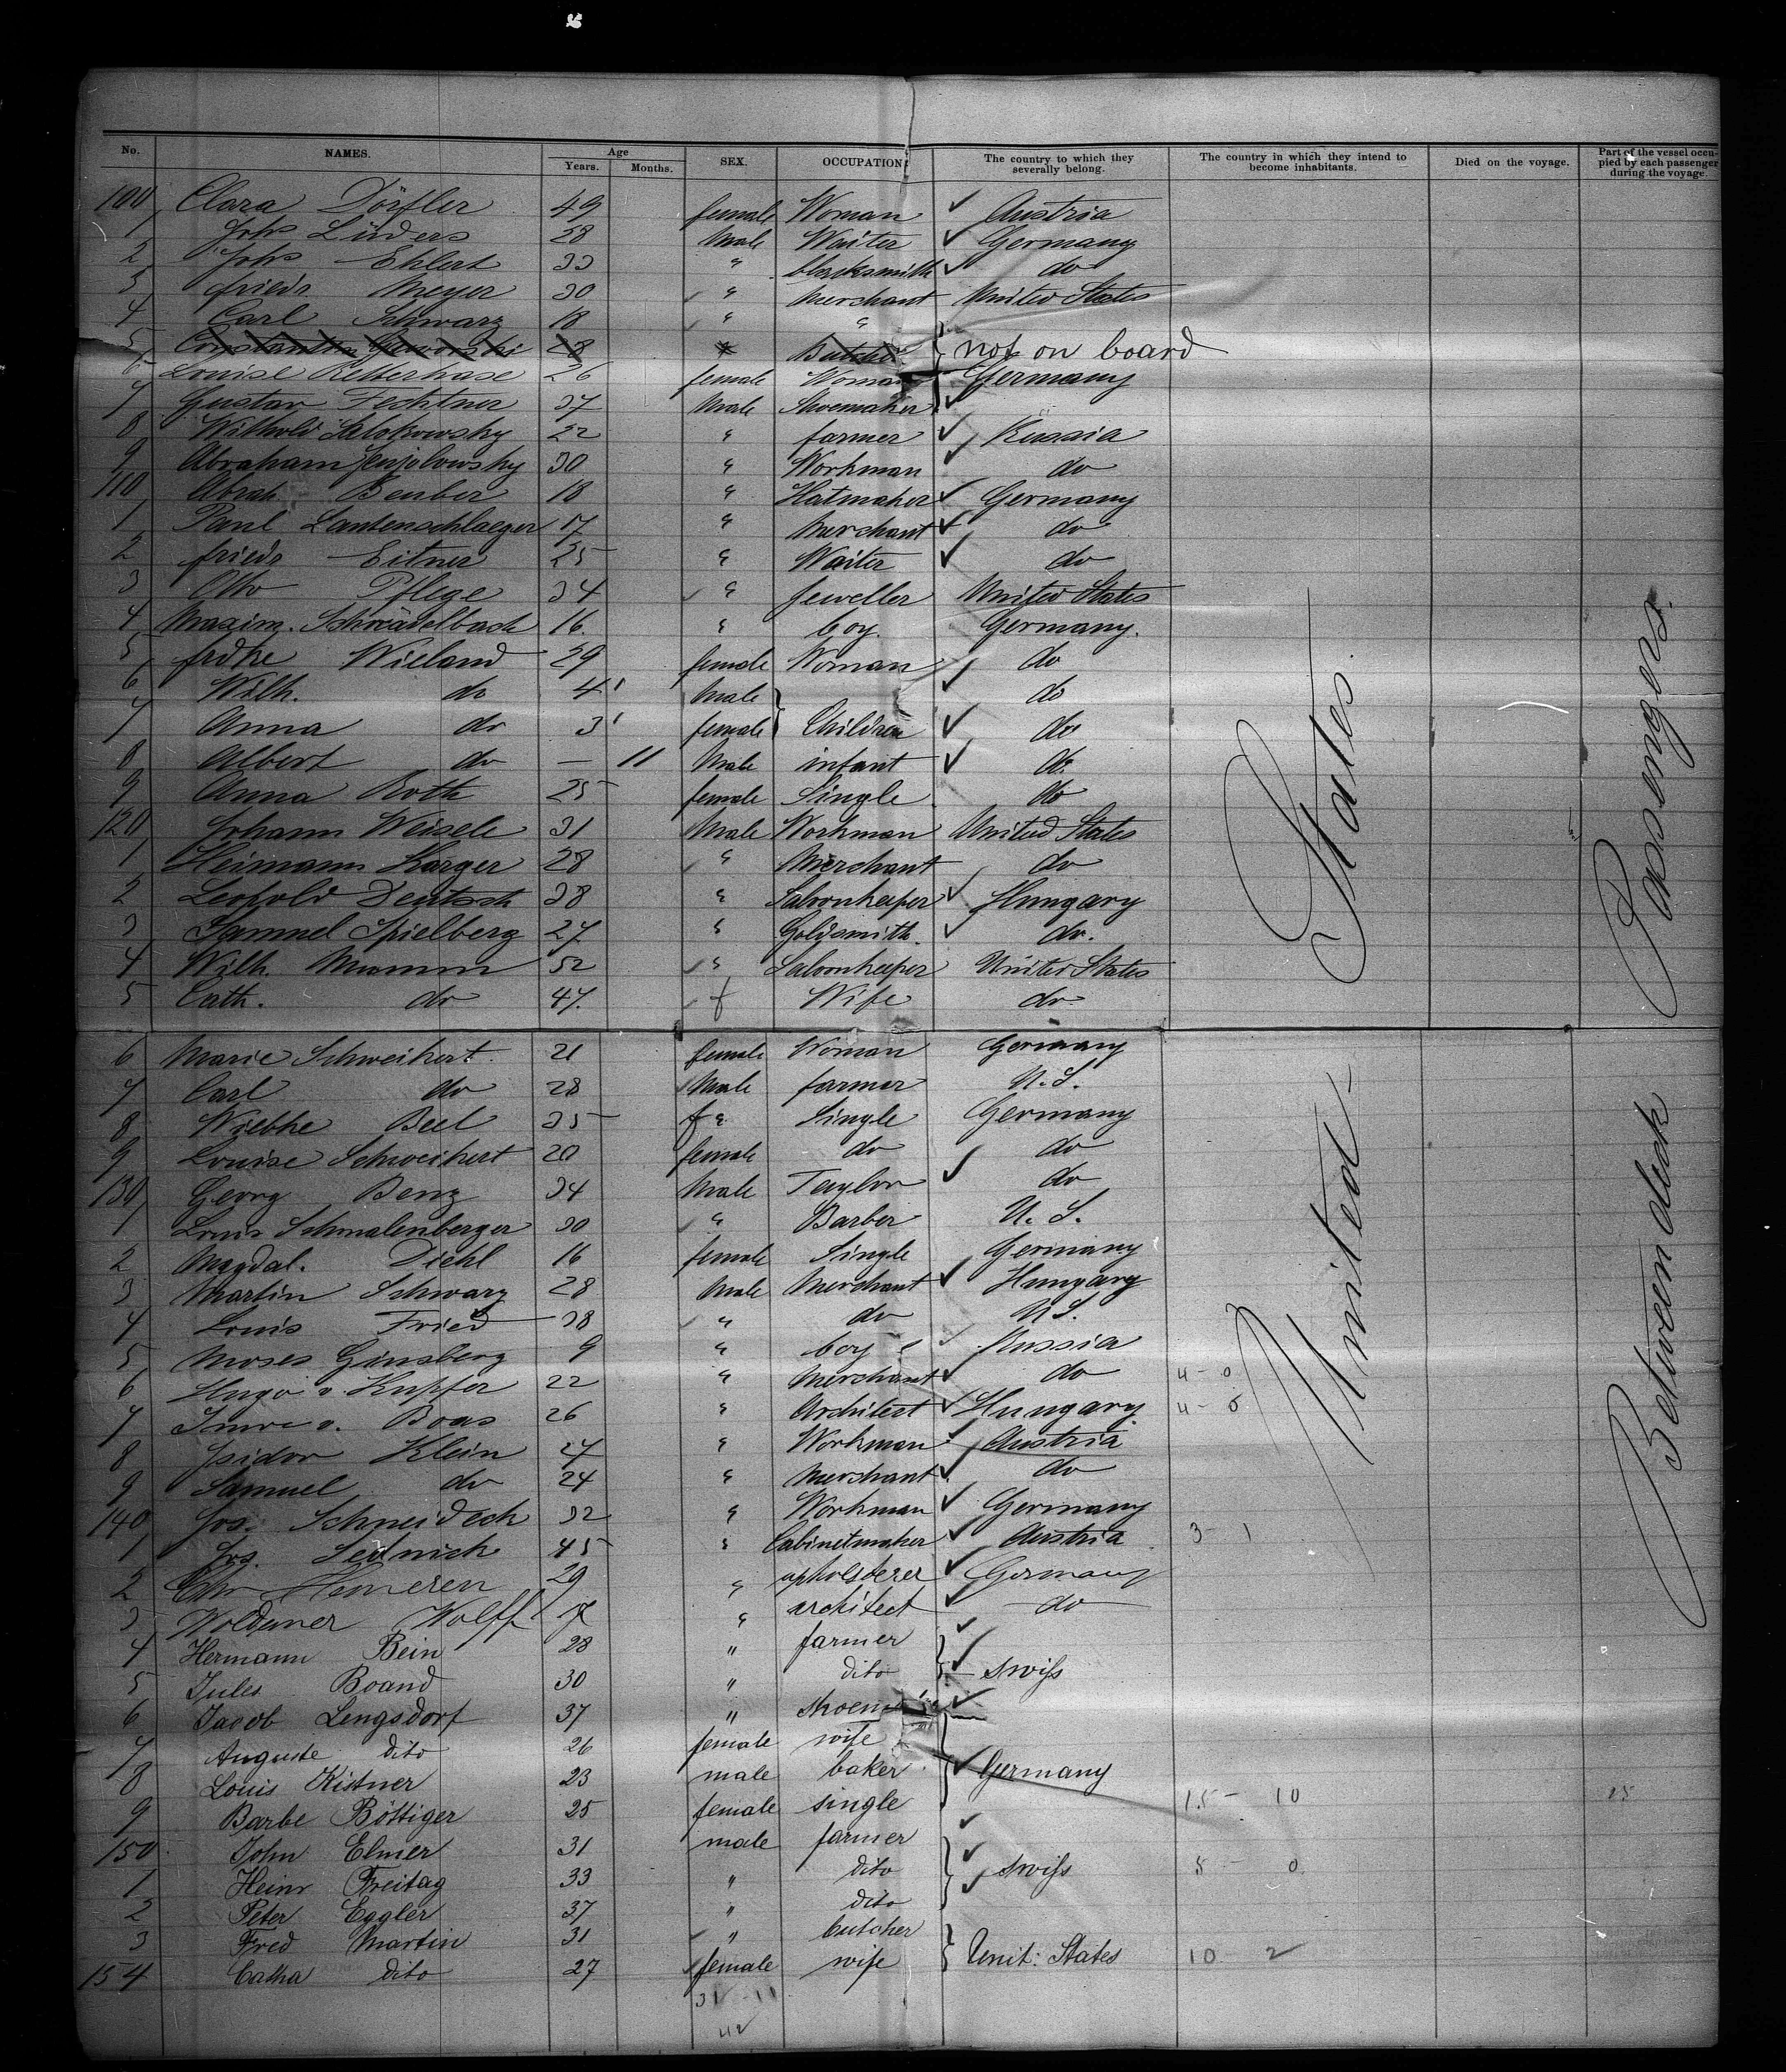 No. NAMES. Age Years. Months. SEX. OCCUPATION. The country to which they severally belong. The country in which they intend to become inhabitants. Died on the voyage. Part of the vessel occupied by each passenger during the voyage.
100 Clara Dörfler 49 female Woman ✓ Austria
1 Johs Lüders 28 Male Waiter ✓ Germany
2 Johs Ehlert 33 " blacksmith ✓ do
3 friedr Meyer 30 " Merchant United States
4 Carl Schwarz 18 " "
5 Constantin 28 Butcher not on board
6 Louise Retterhase 26 female Woman Germany
7 Gustav Fechtner 37 Male Shoemaker ✓
8 Withold 22 " farmer ✓ Russia
9 Abraham 30 " Workman do
110 Abrah Beuber 18 " Hatmaker ✓ Germany
1 Paul Lautenschlaeger 17 " Merchant ✓ do
2 friedr Eitner 25 " Waiter ✓ do
3 Otto Pflege 34 " Jeweller United States
4 Maxim. Schwädelbach 16 " boy. Germany.
5 frdke Wieland 29 female Woman ✓ do
6 Wilh. do 4 Male ✓ do
7 Anna do 3 female Children ✓ do
8 Albert do — 11 Male infant ✓ do
9 Anna Roth 25 female Single do
120 Johann Weisele 31 Male Workman United States
1 Heimann Karger 28 " Merchant do
2 Leopold Deutsch 38 " Saloonkeeper ✓ Hungary
3 Samuel Spielberg 27 " Goldsmith. ✓ do.
4 Wilh. Mumm 52 " Saloonkeeper United States
5 Cath. do 47. f Wife do.
6 Marie Schweikert. 21 female Woman Germany
7 Carl do 28 Male farmer U. S.
8 Wiebke Beel 35 f Single Germany
9 Louise Schweikert 20 female do do
130 Georg Benz 34 Male Taylor ✓ do
1 Louis Schmalenberger 30 " Barber U. S.
2 Magdal. Diehl 16 female Single Germany
3 Martin Schwarz 28 Male Merchant ✓ Hungary
4 Louis Fried 38 " do U S.
5 Moses Ginsberg 9 " boy ✓ Russia
6 Hugo v. Kupfer 22 " Merchant ✓ do 4 - 0
7 Imre v. Boas 26 " Architect ✓ Hungary 4 - 0
8 Isidor Klein 27 " Workman ✓ Austria
9 Samuel do 24 " Merchant ✓ do
140 Jos. Schneideck 32 " Workman ✓ Germany
1 Jos. Sednick 45 " Cabinetmaker ✓ Austria 3 - 1
2 Otto Hemeren 29 " upholsterer ✓ Germany
3 Woldemer Wolff " architect ✓ do
4 Hermann Bein 28 " farmer ✓
5 Jules Boand 30 " dito ✓ swiss
6 Jacob Lengsdorf 37 " ✓
7 Auguste dito 26 female wife
8 Louis Kistner 23 male baker ✓ Germany
9 Barbe Böttiger 25 female single 15 - 10 15
150 John Elmer 31 male farmer ✓
1 Heinr Freitag 33 " dito ✓ swiss 8 - 0
2 Peter Eggler 37 " dito ✓
3 Fred Martin 31 " butcher
154 Catha dito 27 female wife Unit: States 10 - 2
31 - 11
42
United States
Between deck Passengers.